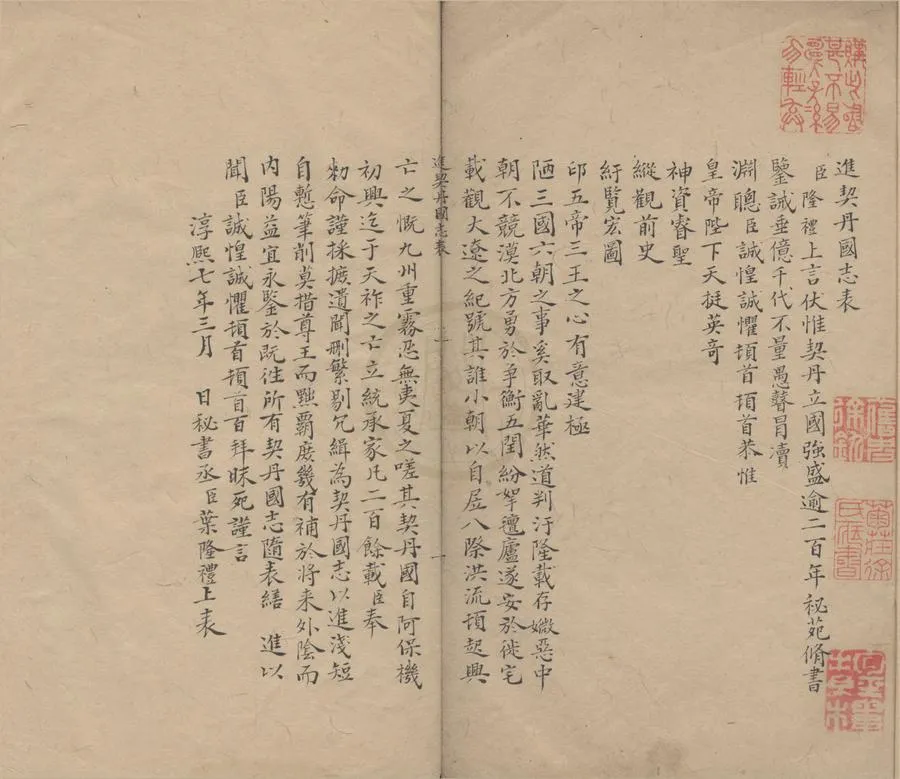 進契丹國志表
臣隆禮上言伏惟契丹立國強盛逾二百年秘苑脩書
鑒誡垂億千代不量愚瞽冒瀆
淵聰臣誠惶誠懼頓首頓首恭惟
皇帝陛下天挺英奇
神資睿聖
縱觀前史
紆覽宏圖
卬五帝三王之心有意建極
陋三國六朝之事奚取亂華然道判汙隆載存媺惡中
朝不競漠北方勇於爭衡五閏紛挐氊廬遂安於徙宅
載觀大遼之紀號其誰小朝以自居八際洪流頊起興
進契丹國志表
亡之慨九州重霧忍無夷夏之嗟其契丹國自阿保機
初興迄于天祚之亡立統承家凡二百餘載臣奉
勑命謹採摭遺聞刪繁剔冗緝為契丹國志以進淺短
自慙筆削莫措尊王而黜覇庶幾有補於將来外陰而
内陽益宜永鑒於既往所有契丹國志隨表繕 進以
聞臣誠惶誠懼頓首頓首百拜昧死謹言
淳熙七年三月 日秘書丞臣葉隆禮上表
購此書
甚不易